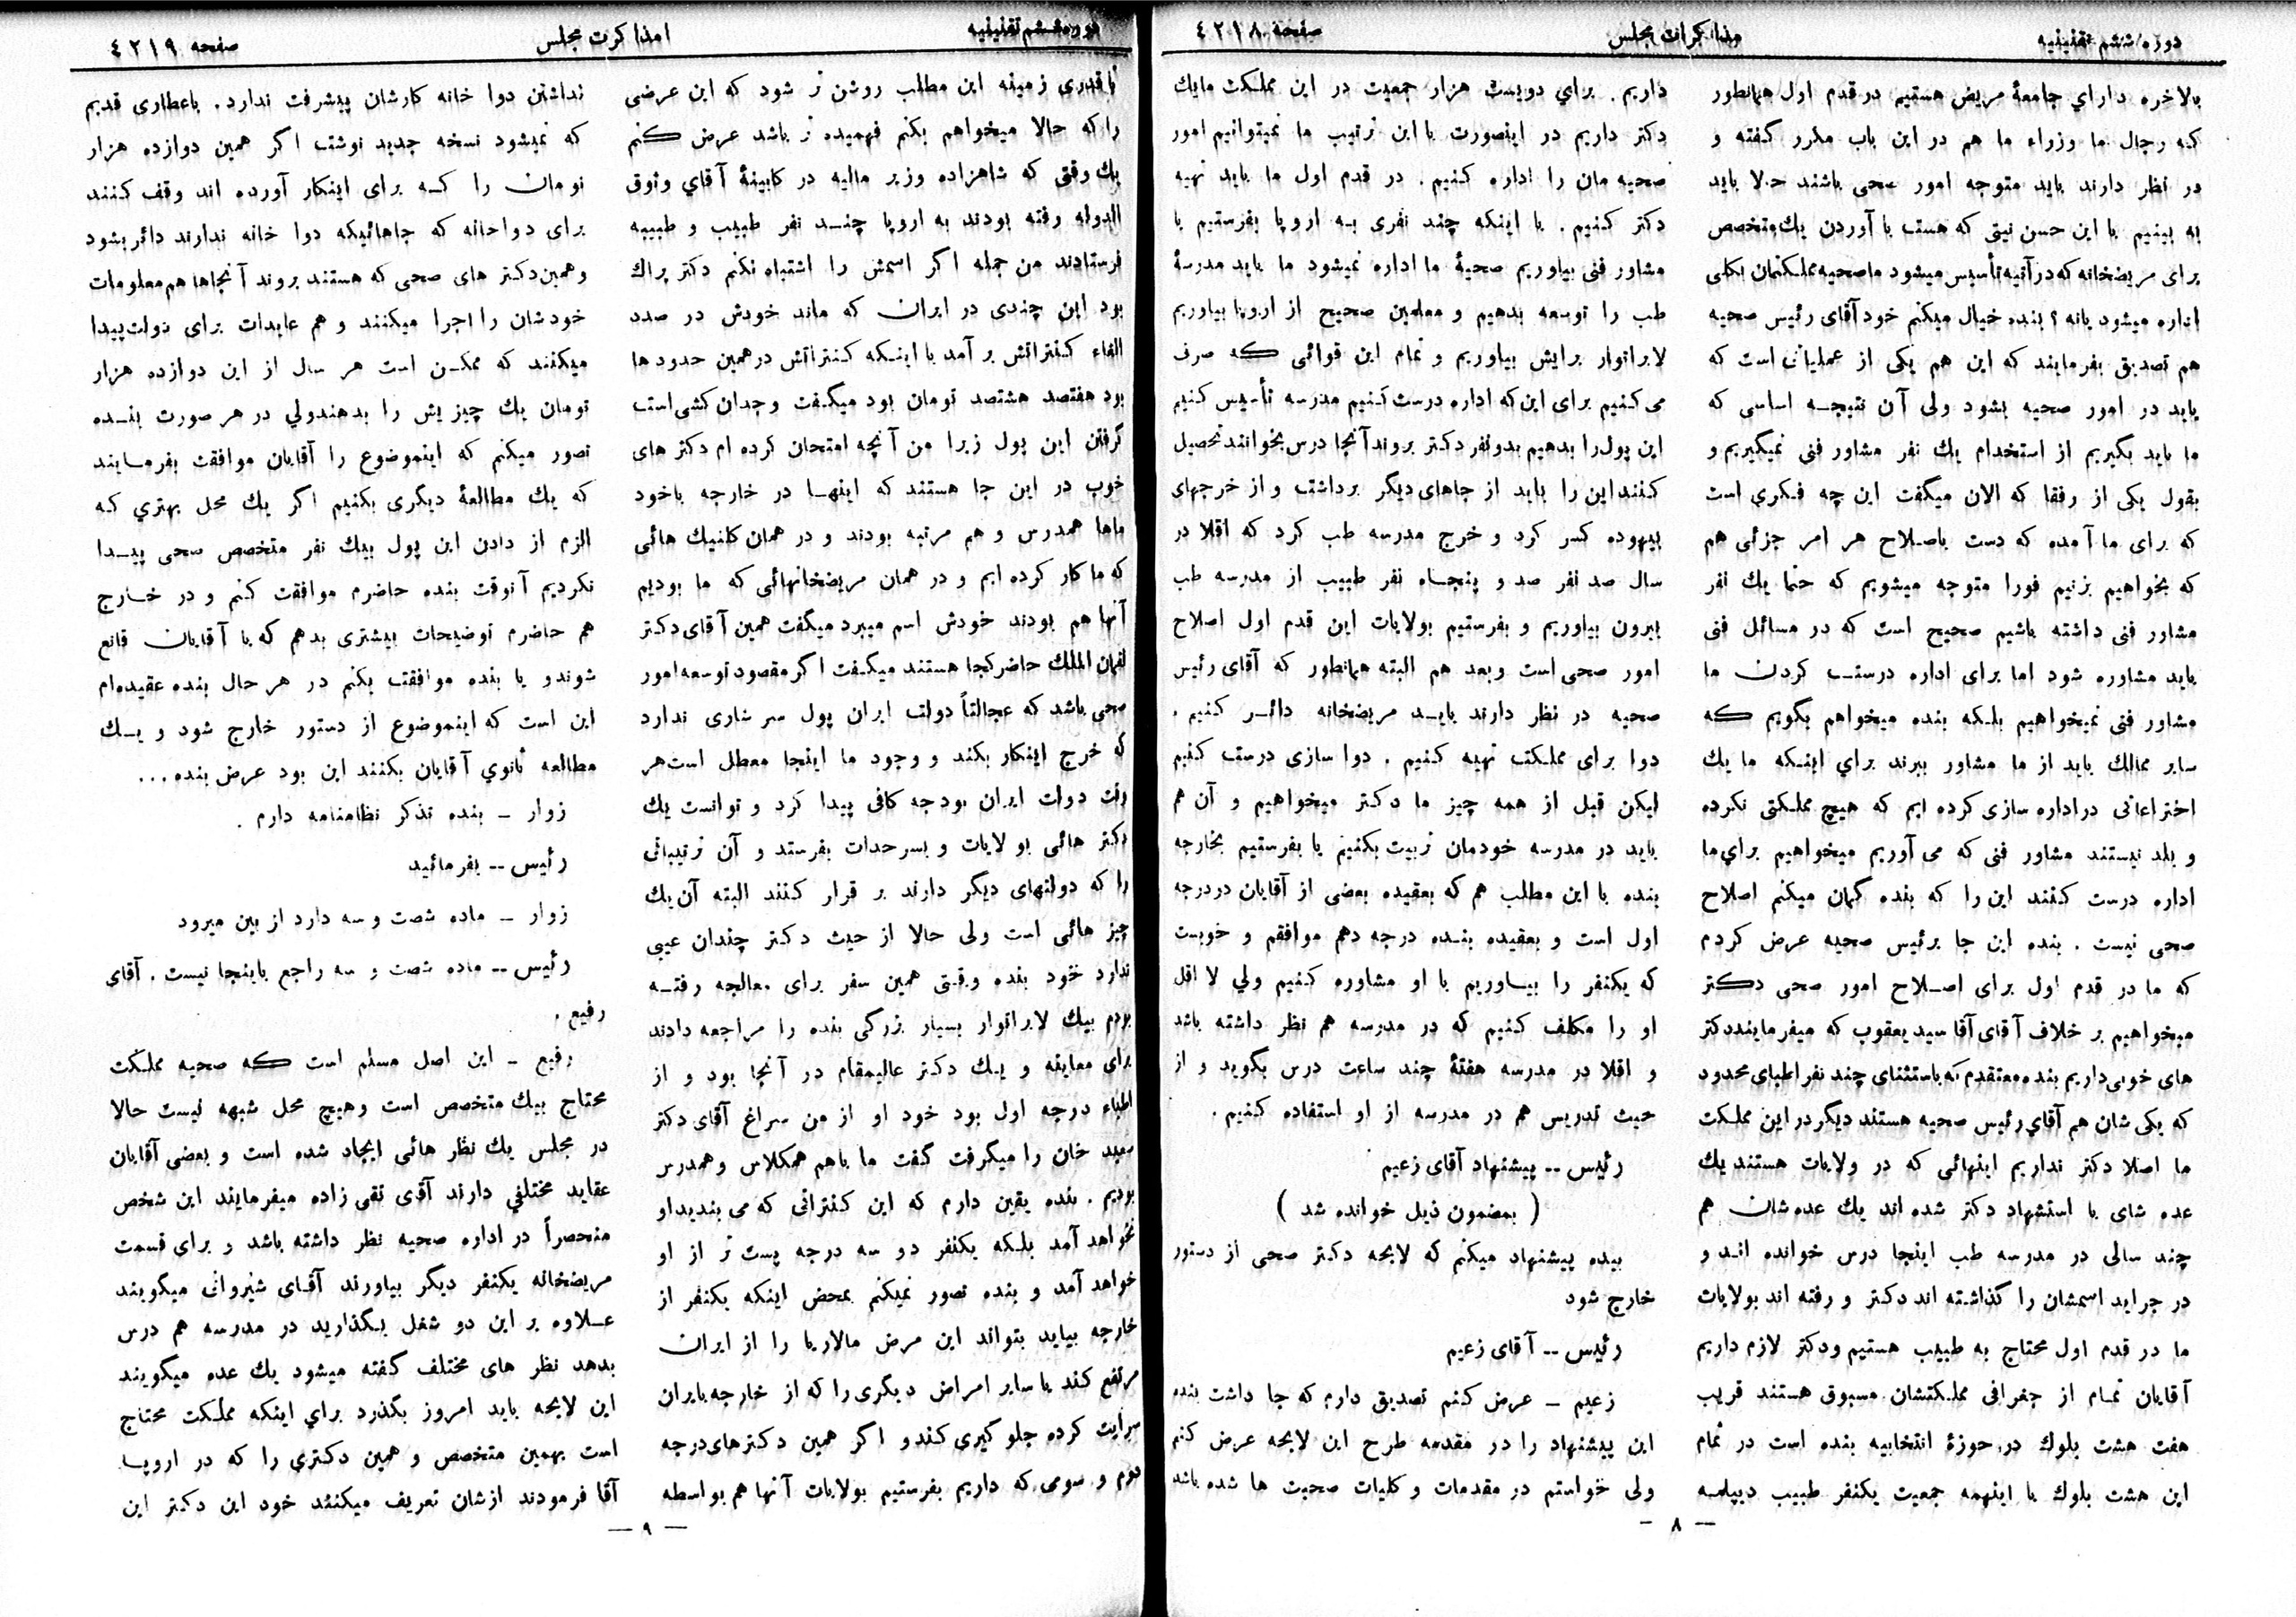 دوره ششم تقنینیه
مذاکرات مجلس
صفحه ٤٢١٨
بالاخره داراي جامعهٔ مریض هستیم در قدم اول همانطور
که رجال ما وزراء ما هم در این باب مکرر گفته و
در نظر دارند باید متوجه امور صحی باشند حالا باید
به بینیم با این حسن نیتی که هست با آوردن یك متخصص
برای مریضخانه که در آتیه تأسیس میشود ما صحیه مملکتمان بکلی
اداره میشود یانه ؟ بنده خیال میکنم خود آقای رئیس صحیه
هم تصدیق بفرمایند که این هم یکی از عملیاتی است که
باید در امور صحیه بشود ولی آن نتیجـه اساسی که
ما باید بگیریم از استخدام یك نفر مشاور فنی نمیگیریم و
بقول یکی از رفقا که الان میگفت این چه فکری است
که برای ما آمده که دست باصلاح هر امر جزئی هم
که بخواهیم بزنیم فورا متوجه میشویم که حتما یك نفر
مشاور فنی داشته باشیم صحیح است که در مسائل فنی
باید مشاوره شود اما برای اداره درست کردن ما
مشاور فنی نمیخواهیم بلکه بنده میخواهم بگویم که
سایر ممالك باید از ما مشاور ببرند براي اینکه ما یك
اختراعاتی در اداره سازی کرده ایم که هیچ مملکتی نکرده
و بلد نیستند مشاور فنی که می آوریم میخواهیم براي ما
اداره درست کنند این را که بنده گمان میکنم اصلاح
صحی نیست . بنده این جا برئیس صحیه عرض کردم
که ما در قدم اول برای اصلاح امور صحی دکتر
میخواهیم بر خلاف آقای آقا سید یعقوب که میفرمایند دکتر
های خوبی داریم بنده معتقدم که باستثنای چند نفر اطبای محدود
که یکی شان هم آقاي رئیس صحیه هستند دیگر در این مملکت
ما اصلا دکتر نداریم اینهائی که در ولایات هستند یك
عده شای با استشهاد دکتر شده اند یك عده شان هم
چند سالی در مدرسه طب اینجا درس خوانده انـد و
در جراید اسمشان را گذاشته اند دکتر و رفته اند بولایات
ما در قدم اول محتاج به طبیب هستیم ودکتر لازم داریم
آقایان تمام از جغرافی مملکتشان مسبوق هستند قریب
هفت هشت بلوك در حوزهٔ انتخابیه بنده است در تمام
این هشت بلوك با اینهمه جمعیت یکنفر طبیب دیپلمـه
داریم . براي دویست هزار جمعیت در این مملکت ما یك
دکتر داریم در اینصورت با این ترتیب ما نمیتوانیم امور
صحیه مان را اداره کنیم . در قدم اول ما باید تهیه
دکتر کنیم . با اینکه چند نفری بـه اروپا بفرستیم یا
مشاور فنی بیاوریم صحیهٔ ما اداره نمیشود ما باید مدرسهٔ
طب را توسعه بدهیم و معلمین صحیح از اروپا بیاوریم
لابراتوار برایش بیاوریم و تمام این قوائی که صرف
می کنیم برای این که اداره درست کنیم مدرسه تأسیس کنیم
این پول را بدهیم بدو نفر دکتر بروند آنجا درس بخوانند تحصیل
کنند این را باید از جاهای دیگر برداشت و از خرجهای
بیهوده کسر کرد و خرج مدرسه طب کرد که اقلا در
سال صد نفر صد و پنجـاه نفر طبیب از مدرسه طب
بیرون بیاوریم و بفرستیم بولایات این قدم اول اصلاح
امور صحی است وبعد هم البته همانطور که آقای رئیس
صحیه در نظر دارند بایـد مریضخانه دائـر کنیم .
دوا برای مملکت تهیه کنیم . دوا سازی درست کنیم
لیکن قبل از همه چیز ما دکتر میخواهیم و آن هم
باید در مدرسه خودمان تربیت بکنیم یا بفرستیم بخارجه
بنده با این مطلب هم که بعقیده بعضی از آقایان در درجه
اول است و بعقیده بنـده درجه دهم موافقم و خوبست
که یکنفر را بیـاوریم با او مشاوره کنیم ولي لا اقل
او را مکلف کنیم که در مدرسه هم نظر داشته باشد
و اقلا در مدرسه هفتهٔ چند ساعت درس بگوید و از
حیث تدریس هم در مدرسه از او استفاده کنیم .
رئیس -- پیشنهاد آقای زعیم
( بمضمون ذیل خوانده شد )
بنده پیشنهاد میکنم که لایحه دکتر صحی از دستور
خارج شود
رئیس -- آقای زعیم
زعیم - عرض کنم تصدیق دارم که جا داشت بنده
این پیشنهاد را در مقدمه طرح این لایحه عرض کنم
ولی خواستم در مقدمات و کلیات صحبت ها شده باشد
— ٨ —
دوره ششم تقنینیه
امذا کرت مجلس
صفحه ٤٢١٩
تا قدري زمینه این مطلب روشن تر شود که این عرضی
را که حالا میخواهم بکنم فهمیده تر باشد عرض کنم
یك وقتی که شاهزاده وزیر مالیه در کابینهٔ آقاي وثوق
الدوله رفته بودند به اروپا چنـد نفر طبیب و طبیبه
فرستادند من جمله اگر اسمش را اشتباه نکنم دکتر براك
بود این چندی در ایران که ماند خودش در صدد
الغاء کنتراتش بر آمد با اینکه کنتراتش در همین حدود ها
بود هفتصد هشتصد تومان بود میگفت وجدان کشی است
گرفتن این پول زیرا من آنچه امتحان کرده ام دکتر های
خوب در این جا هستند که اینهـا در خارجه باخود
ماها همدرس و هم مرتبه بودند و در همان کلنیك هائی
که ما کار کرده ایم و در همان مریضخانهائی که ما بودیم
آنها هم بودند خودش اسم میبرد میگفت همین آقای دکتر
لقمان الملك حاضر کجا هستند میگفت اگر مقصود توسعه امور
صحی باشد که عجالتاً دولت ایران پول سرشاری ندارد
که خرج اینکار بکند و وجود ما اینجا معطل است هر
وقت دولت ایران بودجه کافی پیدا کرد و توانست یك
دکتر هائی بولایات و بسرحدات بفرستد و آن ترتیباتی
را که دولتهای دیگر دارند بر قرار کنند البته آن یك
چیز هائی است ولی حالا از حیث دکتر چندان عیبی
ندارد خود بنده وقتی همین سفر برای معالجه رفتـه
بودم بیك لابراتوار بسیار بزرگی بنده را مراجعه دادند
برای معاینه و یك دکتر عالیمقام در آنجا بود و از
اطباء درجه اول بود خود او از من سراغ آقای دکتر
سعید خان را میگرفت گفت ما باهم همکلاس و همدرس
بودیم . بنده یقین دارم که این کنتراتی که می بندید او
نخواهد آمد بلکه یکنفر دو سه درجه پست تر از او
خواهد آمد و بنده تصور نمیکنم بمحض اینکه یکنفر از
خارجه بیاید بتواند این مرض مالاریا را از ایران
مرتفع کند یا سایر امراض دیگری را که از خارجه بایران
سرایت کرده جلو گیری کند و اگر همین دکترهای درجه
دوم و سومی که داریم بفرستیم بولایات آنها هم بواسطه
نداشتن دوا خانه کارشان پیشرفت ندارد . باعطاری قدیم
که نمیشود نسخه جدید نوشت اگر همین دوازده هزار
تومان را کـه برای اینکار آورده اند وقف کنند
برای دواخانه که جاهائیکه دوا خانه ندارند دائر بشود
وهمین دکتر های صحی که هستند بروند آنجاها هم معلومات
خودشان را اجرا میکنند و هم عایدات برای دولت پیدا
میکنند که ممکن است هر سال از این دوازده هزار
تومان یك چیزیش را بدهند ولي در هر صورت بنـده
تصور میکنم که اینموضوع را آقایان موافقت بفرمـایند
که یك مطالعهٔ دیگری بکنیم اگر یك محل بهتري که
الزم از دادن این پول بیك نفر متخصص صحی پیـدا
نکردیم آنوقت بنده حاضرم موافقت کنم و در خـارج
هم حاضرم توضیحات بیشتری بدهم که یا آقایان قانع
شوند و یا بنده موافقت بکنم در هر حال بنده عقیده ام
این است که اینموضوع از دستور خارج شود و یـك
مطالعه ثانوي آقایان بکنند این بود عرض بنده ...
زوار - بنده تذکر نظامنامه دارم .
رئیس -- بفرمائید
زوار - ماده شصت و سه دارد از بین میرود
رئیس -- ماده شصت و سه راجع باینجا نیست . آقای
رفیع .
رفیع - این اصل مسلم است که صحیه مملکت
محتاج بیك متخصص است وهیچ محل شبهه نیست حالا
در مجلس یك نظر هائی ایجاد شده است و بعضی آقایان
عقاید مختلفي دارند آقای تقی زاده میفرمایند این شخص
منحصراً در اداره صحیه نظر داشته باشد و برای قسمت
مریضخانه یکنفر دیگر بیاورند آقـای شیروانی میگویند
عـلاوه بر این دو شغل بگذارید در مدرسه هم درس
بدهد نظر های مختلف گفته میشود یك عده میگویند
این لایحه باید امروز بگذرد براي اینکه مملکت محتاج
است بهمین متخصص و همین دکتري را که در اروپا
آقا فرمودند ازشان تعریف میکنند خود این دکتر این
— ٩ —